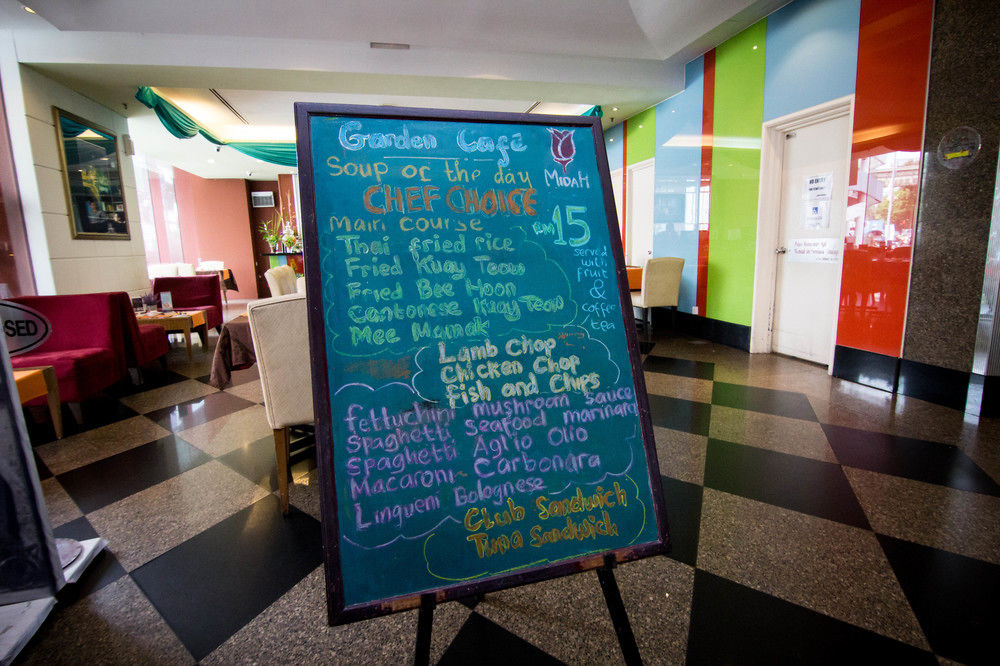 Garden Cafe
MIDAH
Soup of the day
CHEF CHOICE
Main course
RM 15
served
with
fruit
&
coffee
tea
Thai fried rice
Fried Kuay Teow
Fried Bee Hoon
Cantonese Kuay Teow
Mee Mamak
Lamb Chop
Chicken Chop
Fish and Chips
fettuchini mushroom sauce
Spaghetti Seafood marinara
Spaghetti Aglio Olio
Macaroni Carbonara
Lingueni Bolognese
Club Sandwich
Tuna Sandwich
SED
NO ENTRY